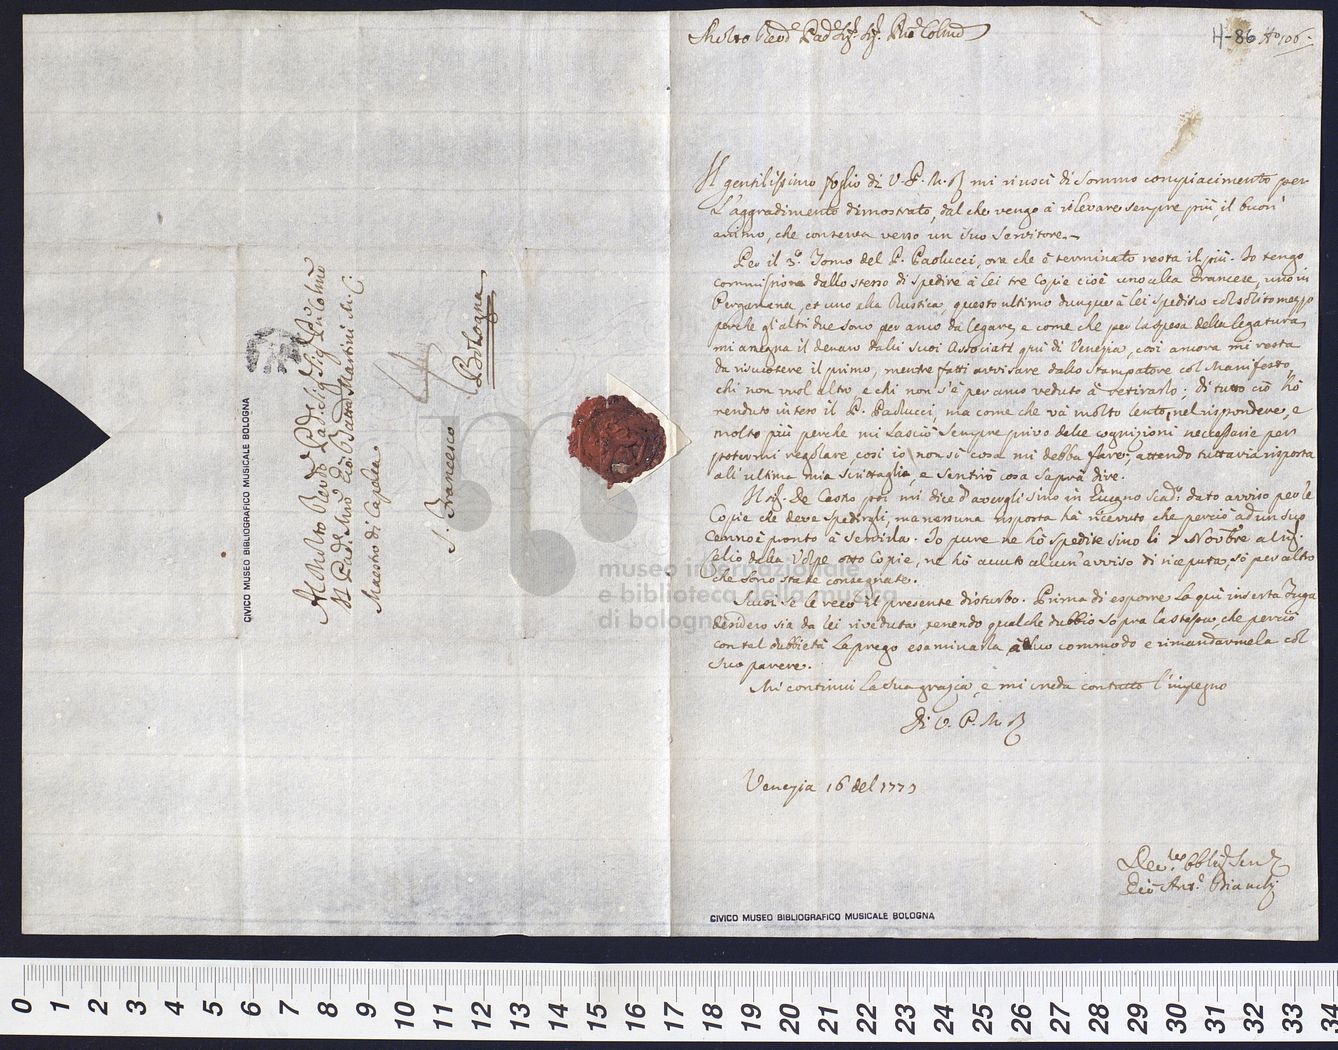 Molto Revd. Padr. Sigr. Sigr. Pne Colmo
H-86 Ho 106.
Il gentilissimo foglio di V. P. M. R. mi riuscì di sommo compiacimento per
l'aggradimento dimostrato, dal che vengo à rilevare sempre più, il buon
animo, che conserva verso un suo Servitore.
Per il 3.o Tomo del P. Paolucci, ora che è terminato resta il più. Io tengo
commissione dallo stesso di spedire à Lei tre Copie cioè uno alla Francese, uno in
Pergamena, et uno alla Rustica, questo ultimo dunque à Lei spedisco col solito mezzo
perche gl'altri due sono per anco da legare, e come che per la spesa della legatura
mi asegna il denaro dalli suoi Associati qui di Venezia, così ancora mi resta
da riscuotere il primo, mentre fatti avvisare dallo Stampatore col Manifesto
chi non vuol altro e chi non s'è per anco veduto à retirarlo; di tutto ciò hò
renduto inteso il P. Paolucci, ma come che và molto lento, nel rispondere, e
molto più perche mi lasciò sempre privo delle cognizioni necessarie per
potermi regolare così io non sò cosa mi debba fare; attendo tuttavia risposta
all'ultima mia Scrittagli, e sentirò cosa saprà dire.
Il Sig. De Castro poi mi dice d'avergli sino in Giugno Scad. dato avviso per le
Copie che deve spedirgli, ma nessuna risposta hà ricevuto che perciò ad un suo
Cenno è pronto à servirla. Io pure ne hò spedite sino li 7 Novbre al
Lelio dalla Volpe otto Copie, ne hò avuto alcun'avviso di riceputa, sò per altro
che sono state consegnate.
Scusi se le reco il presente disturbo. Prima di esporre la quì inserta Fuga
desidero sia da Lei riveduta, tenendo qualche dubbio sopra la stessa, che perciò
con tal dubbietà la prego esaminarla à suo commodo e rimandarmela col
suo parere.
Mi continui la sua grazia, e mi creda con tutto l'impegno
Di V. P. M. R.
Venezia 16 del 1773
Devmo Obblig. Servr
Gio Ant.o Bianchi
CIVICO MUSEO BIBLIOGRAFICO MUSICALE BOLOGNA
Al Molto Revdo Padr. Sig. Sig. Pne Colmo
Il Padre Mro Gio Batta Martini M. C.
Maestro di Capella
S. Francesco
Bologna
CIVICO MUSEO BIBLIOGRAFICO MUSICALE BOLOGNA
museo internazionale
e biblioteca della musica
di bologna
0 1 2 3 4 5 6 7 8 9 10 11 12 13 14 15 16 17 18 19 20 21 22 23 24 25 26 27 28 29 30 31 32 33 34